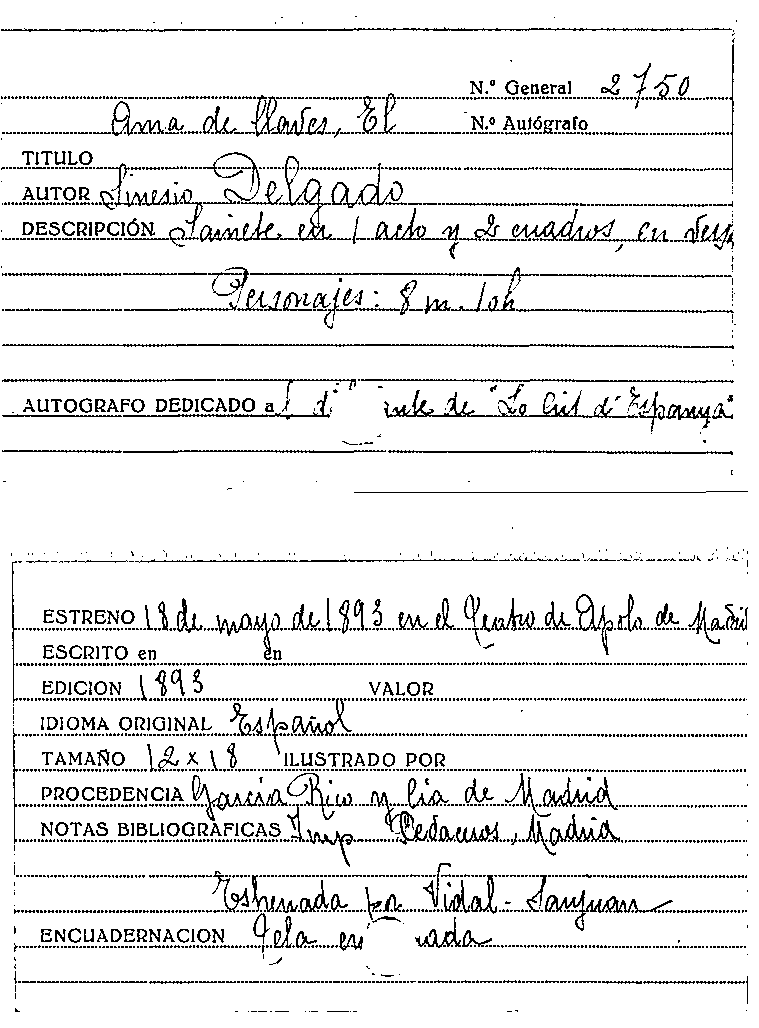 N.º General 2750
Ama de llaves, El N.º Autógrafo
TITULO
AUTOR Sinesio Delgado
DESCRIPCIÓN Sainete en 1 acto y 2 cuadros, en vers
Personajes: 8 m. 10h
AUTOGRAFO DEDICADO al de "Lo Crit d'Espanya"
ESTRENO 18 de mayo de 1893 en el Teatro de Apolo de Madrid
ESCRITO en en
EDICION 1893 VALOR
IDIOMA ORIGINAL Español
TAMAÑO 12 x 18 ILUSTRADO POR
PROCEDENCIA Garcia Rico y Cia de Madrid
NOTAS BIBLIOGRAFICAS Imp Madrid
Estrenada por Vidal - Sanjuan
ENCUADERNACION Tela